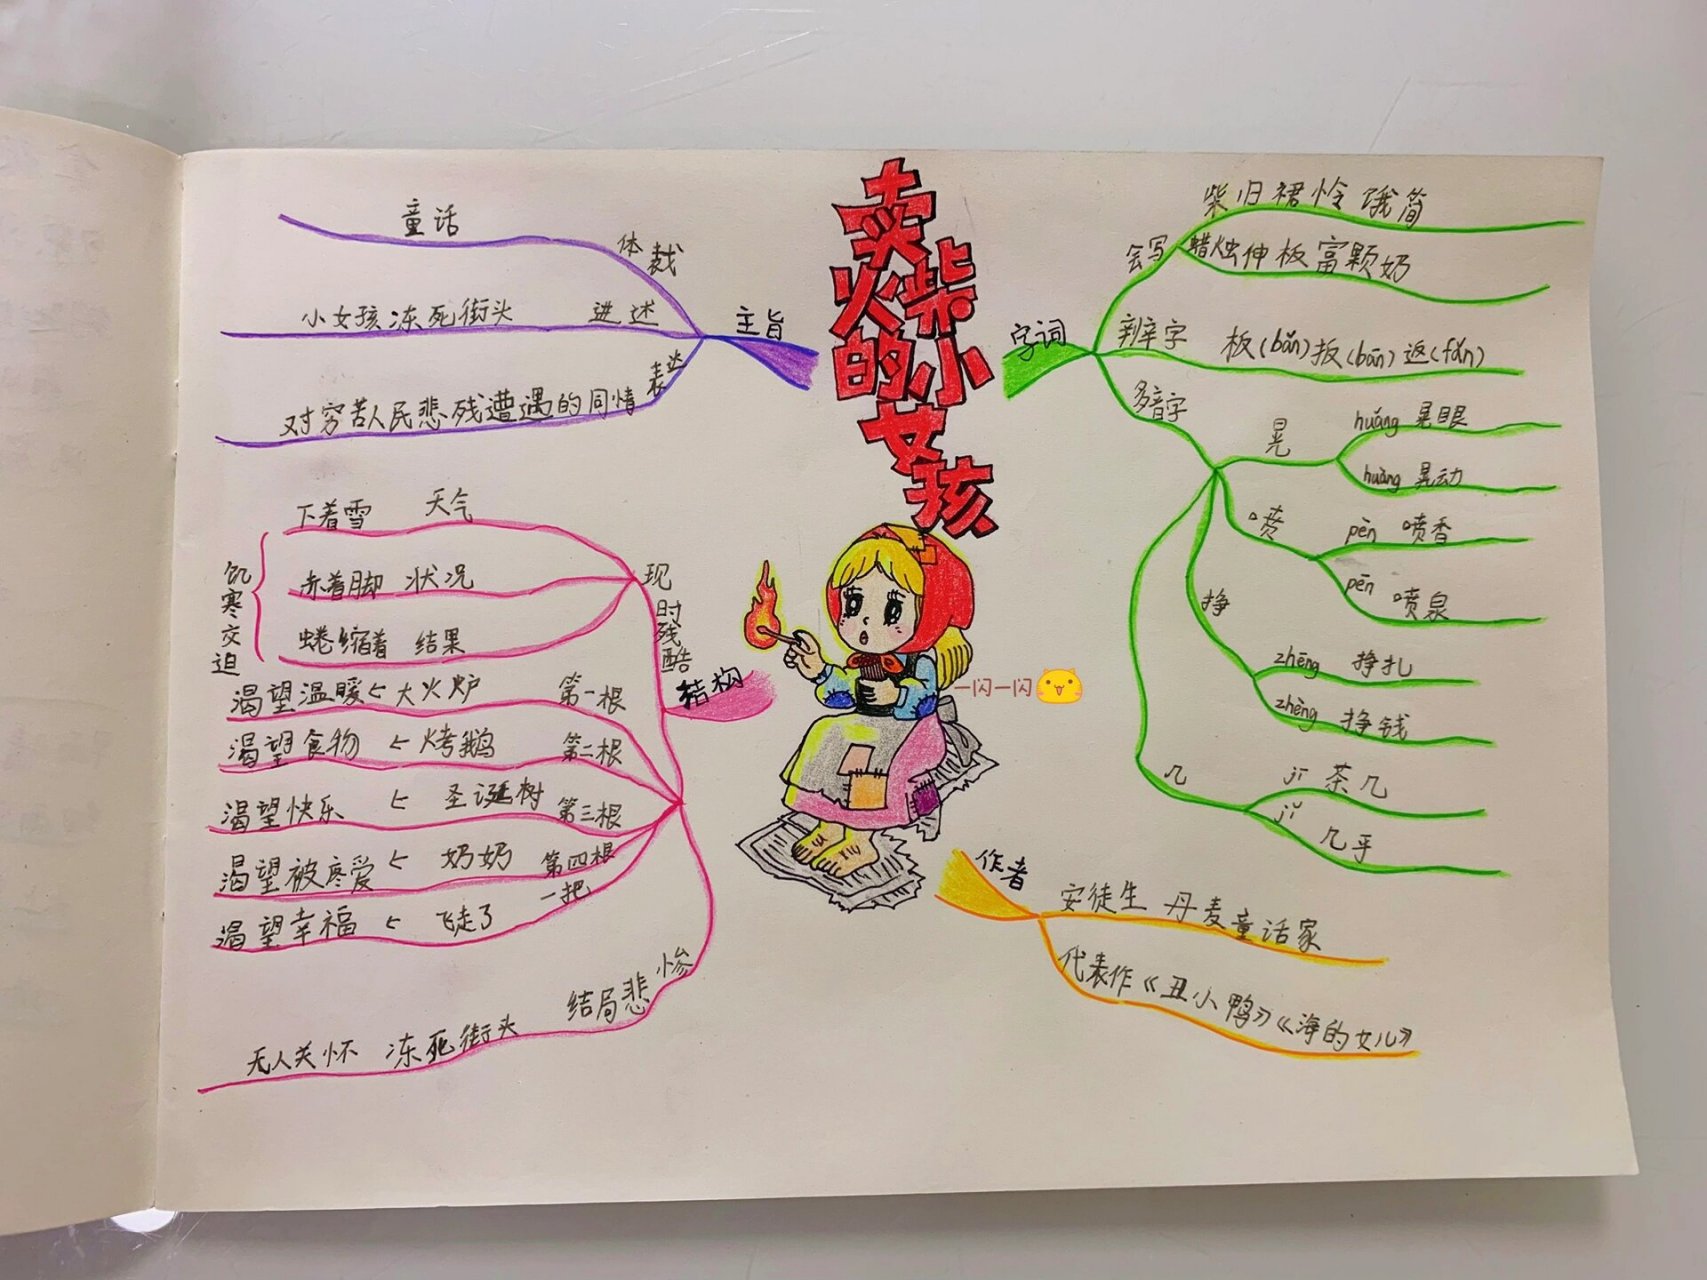 卖火柴的小女孩
主旨
体裁
童话
讲述
小女孩冻死街头
表达
对穷苦人民悲残遭遇的同情
结构
现时残酷
天气
下着雪
状况
赤着脚
结果
蜷缩着
饥寒交迫
第一根
大火炉
渴望温暖
第二根
烤鹅
渴望食物
第三根
圣诞树
渴望快乐
第四根
奶奶
渴望被疼爱
一把
飞走了
渴望幸福
结局悲惨
无人关怀 冻死街头
字词
会写
柴归裙怜饿简
蜡烛伸板富颗奶
辨字
板(bǎn)扳(bān)返(fǎn)
多音字
晃
huǎng 晃眼
huàng 晃动
喷
pèn 喷香
pēn 喷泉
挣
zhēng 挣扎
zhèng 挣钱
几
jī 茶几
jǐ 几乎
作者
安徒生 丹麦童话家
代表作《丑小鸭》《海的女儿》
一闪一闪